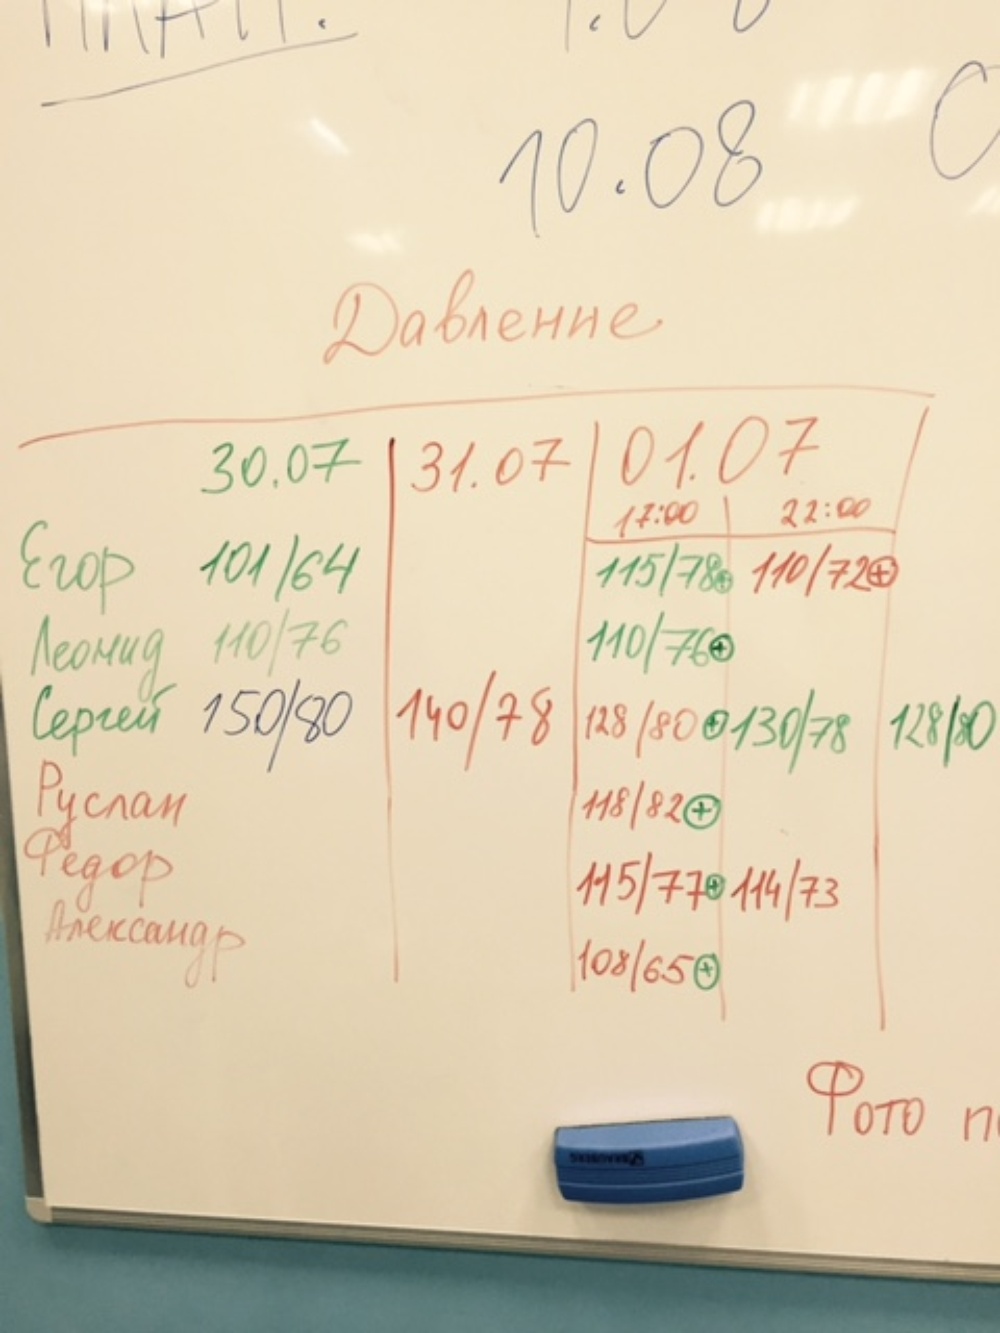 10.08
Давление
30.07 31.07 01.07
17:00 22:00
Егор 101/64 115/78⊕ 110/72⊕
Леонид 110/76 110/76⊕
Сергей 150/80 140/78 128/80⊕ 130/78 128/80
Руслан 118/82⊕
Федор 115/77⊕ 114/73
Александр 108/65⊕
Фото
BRAUBERG